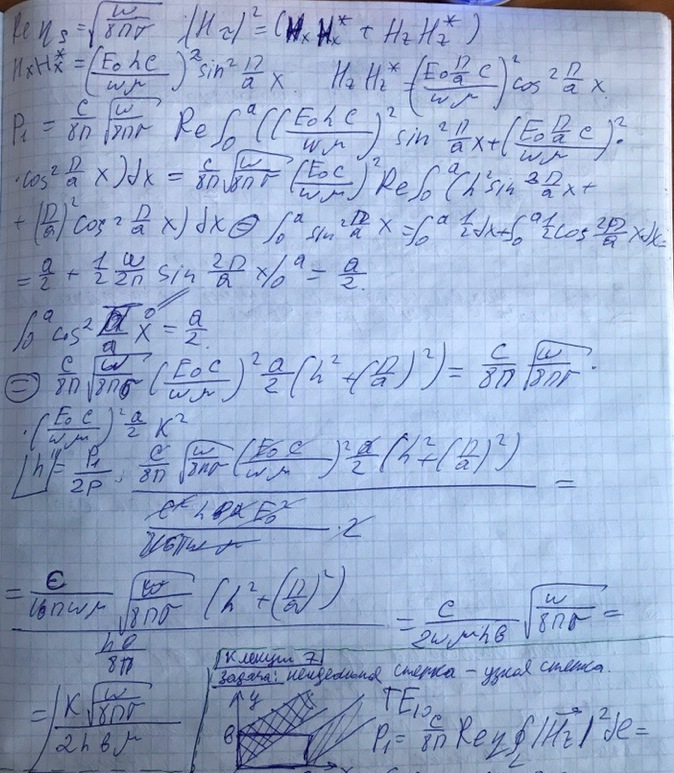 Re η_s = √(w/8πσ) |H_τ|² = (H_x H_x* + H_z H_z*)
H_x H_x* = (E₀hc/wμ)² sin² π/a x  H_z H_z* = (E₀ π/a c/wμ)² cos² π/a x
P₁ = c/8π √(w/8πσ) Re∫₀ᵃ((E₀hc/wμ)² sin² π/a x + (E₀ π/a c/wμ)² ·
· cos² π/a x) dx = c/8π √(w/8πσ) (E₀c/wμ)² Re∫₀ᵃ(h² sin² π/a x +
+ (π/a)² cos² π/a x) dx ⊖ ∫₀ᵃ sin² π/a x = ∫₀ᵃ 1/2 dx + ∫₀ᵃ 1/2 cos 2π/a x dx =
= a/2 + 1/2 a/2π sin 2π/a x/₀ᵃ = a/2.
∫₀ᵃ cos² π/a x = a/2.
⊜ c/8π √(w/8πσ) (E₀c/wμ)² a/2 (h² + (π/a)²) = c/8π √(w/8πσ) ·
· (E₀c/wμ)² a/2 K²
h'' = P₁/2P = c/8π √(w/8πσ) (E₀c/wμ)² a/2 (h² + (π/a)²) =
= c/16πwμ √(w/8πσ) (h² + (π/a)²) = c/2wμhв √(w/8πσ) =
hв/8π
= K√(w/8πσ)/2hвμ
К лекции 7
Задача: неидеальная стенка – узкая стенка.
y
TE₁₀
в
P₁ = c/8π Re η ∮_L |H_τ|² dl =
x